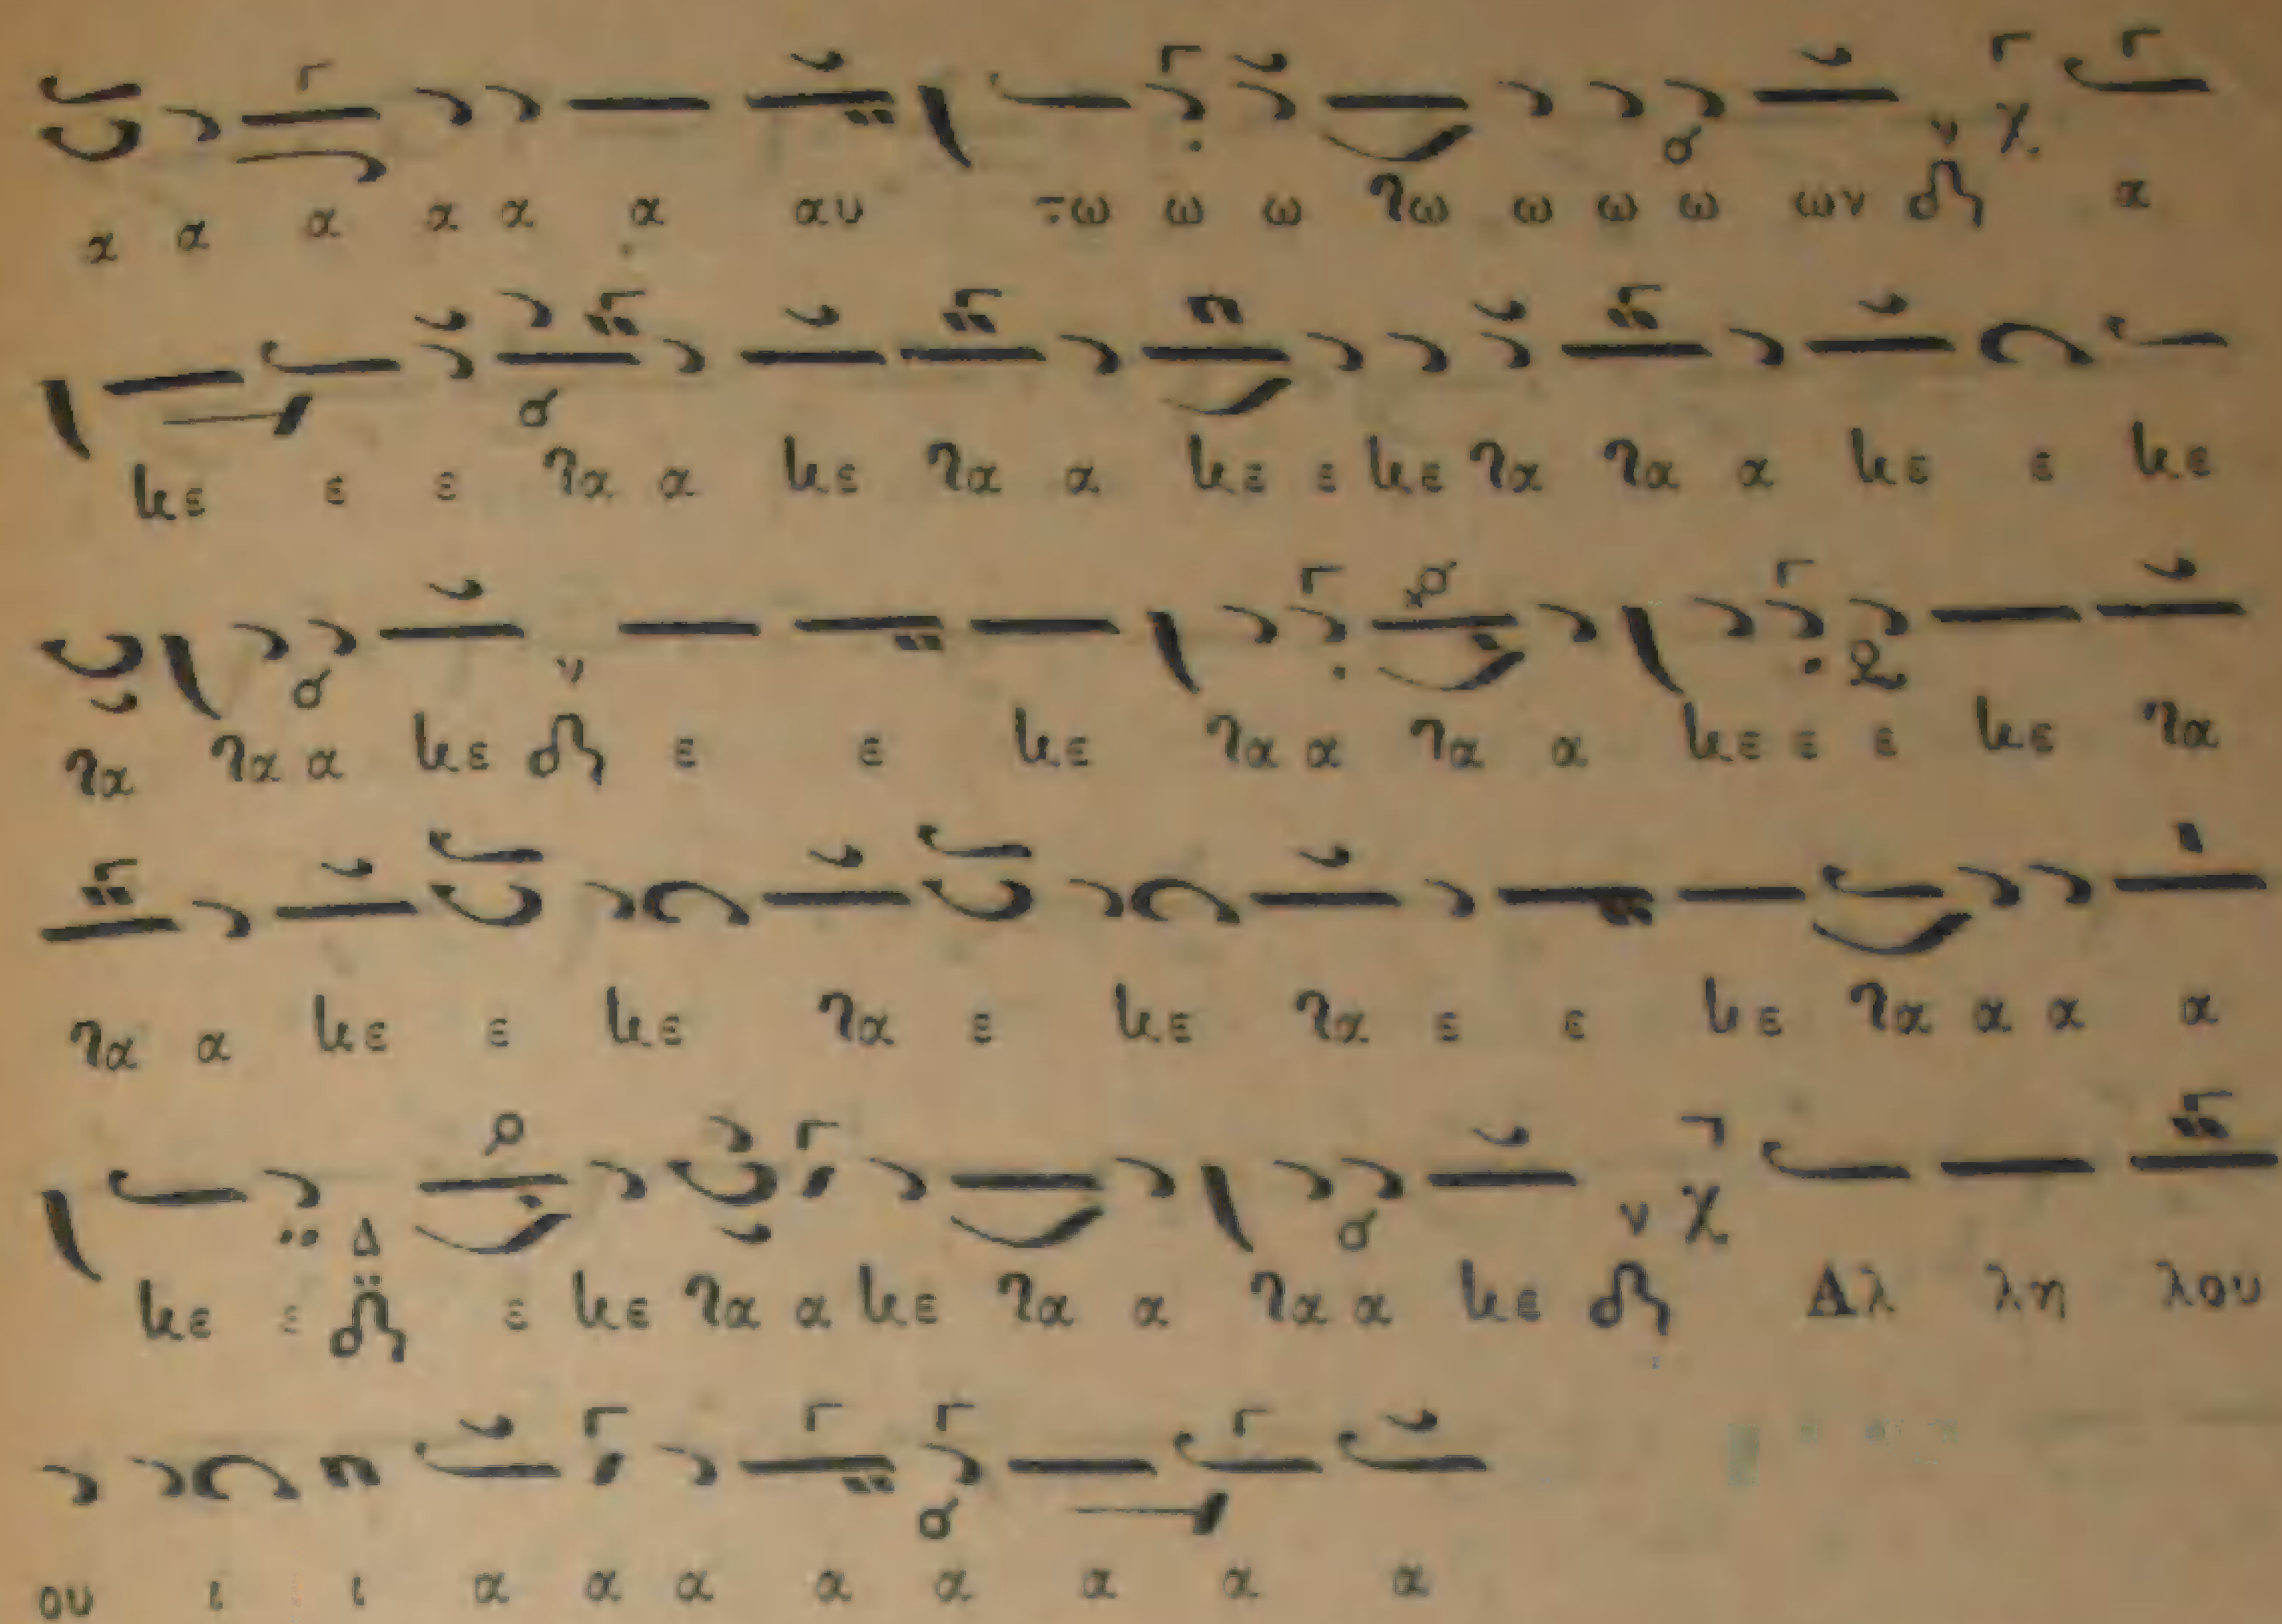 α α α α α α αυ τω ω ω τω ω ω ω ων α
κε ε ε τα α κε τα α κε ε κε τα τα α κε ε κε
τα τα α κε ε ε κε τα α τα α κε ε ε κε τα
τα α κε ε κε τα ε κε τα ε ε κε τα α α α
κε ε Δ ε κε τα α κε τα α τα α κε Αλ λη λου
ου ι ι α α α α α α α α